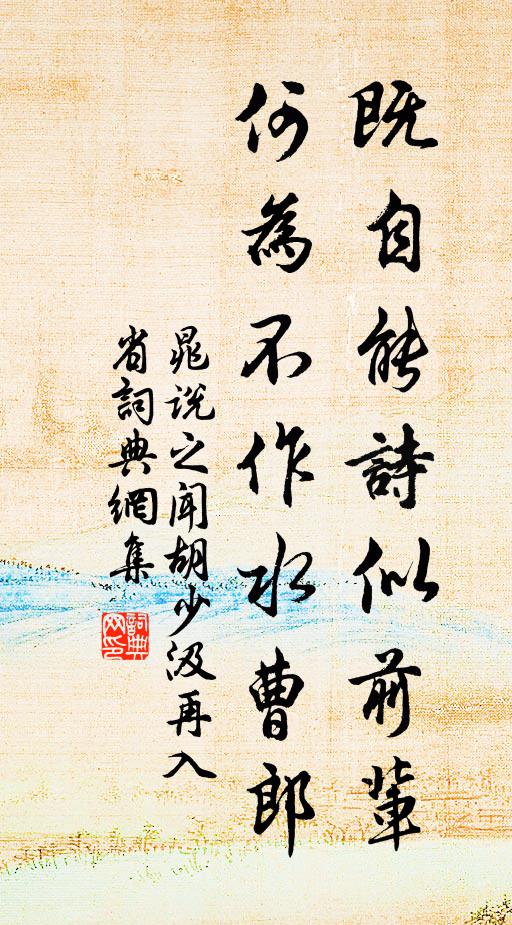 既自能詩似前輩
何為不作水曹郎
晁説之聞胡少汲再入
省詞典網集
詞典
网印